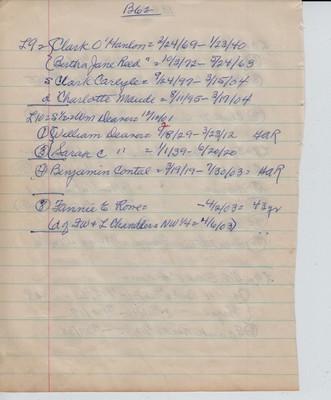 B62
L9 = { Clark O'Hanlon = 2/24/69 - 1/23/40
{ Bertha Jane Reed " = 10/2/72 - 9/24/63
s Clark Carlyle = 9/24/97 - 3/15/04
d Charlotte Maude = 8/11/95 - 3/19/04
L10 = S E & WM Deaver = 11/10/01
① William Deaver = 9/8/29 - 3/23/12 GAR
③ Sarah C " = 1/1/39 - 6/20/20
④ Benjamin = 3/19/19 - 7/30/03 = GAR
⑧ Fannie E Rowe = - 4/2/03 = 43 yr
(d of FW & L Chandler = NW 1/4 = 4/6/03)